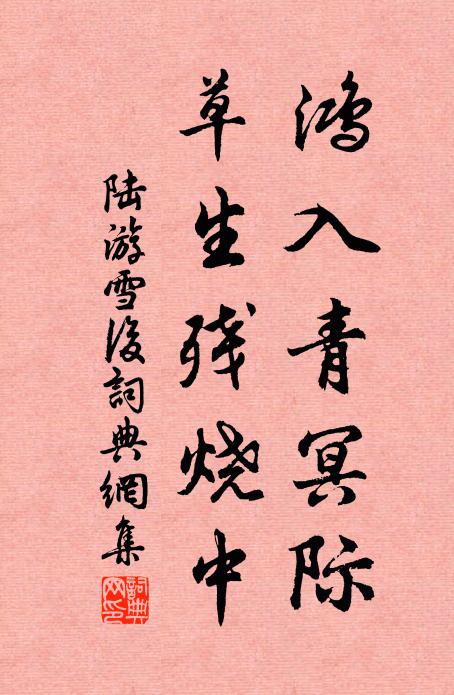 鸿入青冥际
草生残烧中
陆游雪後詞典網集
詞典网印